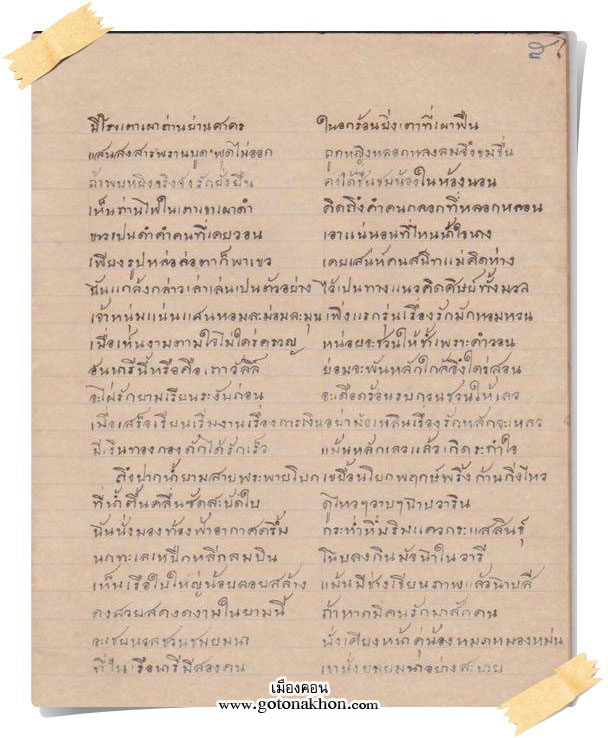 มีโรงเตาเผาถ่านย่านสาคร ในอกร้อนยิ่งเตาที่เผาฟืน
แสนสงสารพรานบุญพูดไม่ออก ถูกหญิงหลอกหลงลมจึงขมขื่น
ถ้าพบหญิงจริงจังรักยั่งยืน คงได้ชื่นชมน้องในห้องนอน
เห็นถ่านไฟในเตาเขาเผาดำ คิดถึงคำคนกลอกที่หลอกหลอน
ขาวเป็นดำคำคนที่เคยวอน เอาแน่นอนที่ไหนน้ำใจนาง
เพียงรูปหล่อล่อตาก็พาเขว เคยเสน่ห์คนสนิทแม่คิดห่าง
ฉันแกล้งกล่าวเล่าเล่นเป็นตัวอย่าง ไว้เป็นทางแนวคิดศิษย์ทั้งมวล
เจ้าหนุ่มแน่นแสนหอมละม่อมละมุน เพิ่งแรกรุ่นเรื่องรักมักหอมหวน
เมื่อเห็นงามตามใจไม่ใคร่ครวญ หน่อยจะชวนให้ช้ำเพราะคำวอน
อันนารีนี้หรือคือเถาวัลลิ์ ย่อมจะพันหลักใกล้จึงใคร่สอน
จะใฝ่รักยามเรียนระงับก่อน จะเดือดร้อนรบกวนชวนให้เลว
เมื่อเสร็จเรียนเริ่มงานเรื่องการเงิน อย่ามัวเพลินเรื่องรักหลักจะเหลว
มีเงินทองกองดักได้รักเร็ว แม้นหลักเลวแล้วเกิดระกำใจ
ถึงปากน้ำยามสายพระพายโบก เขยื้อนโยกพฤกษ์พริ้งก้านกิ่งไหว
ที่น้ำตื้นคลื่นซัดสะบัดใบ ดูไหวๆวาบๆฉาบวาริน
ฉันนั่งมองท้องฟ้าอากาศครึ้ม กระหำหึ่มริมแควกระแสสินธุ์
นกทะเลเหปีกหลีกลมบิน โฉบลงกินมัจฉาในวารี
เห็นเรือใบใหญ่น้อยลอยสล้าง แม้นมีช่างเขียนภาพแล้วฉาบสี
คงสวยสดงดงามในยามนี้ ถ้าหากมีคนรักมาสักคน
จะเชยนวลชวนชม นั่งเคียงหน้าคู่น้องหมดหมองหม่น
ที่ในเรือนารีมีสองคน เขานั่ง อย่างสะบาย
เมืองคอน
www.gotonakhon.com